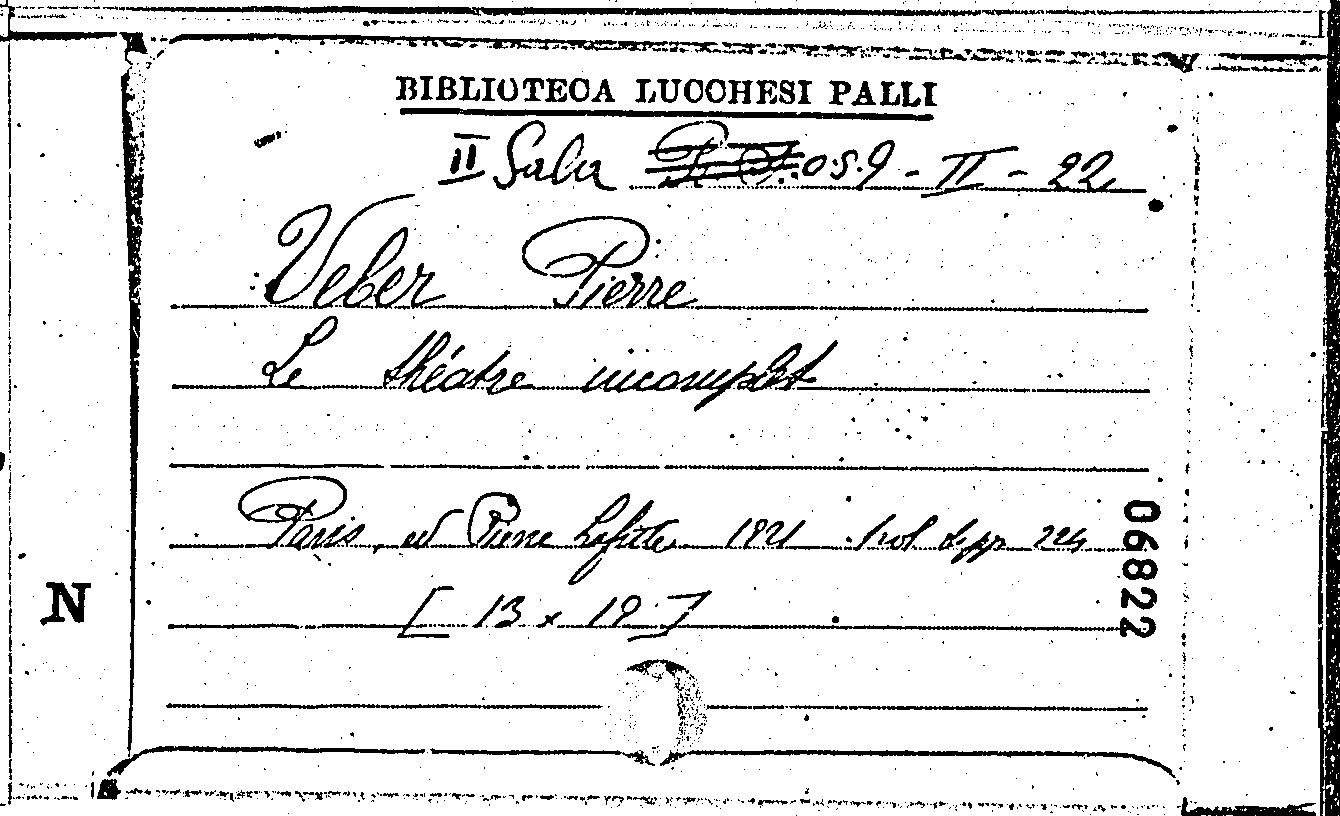 BIBLIOTECA LUCCHESI PALLI
II Sala 0.5.9 - II - 22
Veber Pierre
Le théatre incomplet
Paris, ed Pierre Lafitte 1921 1 vol di pp 224
[ 13 x 19 ]
06822
N